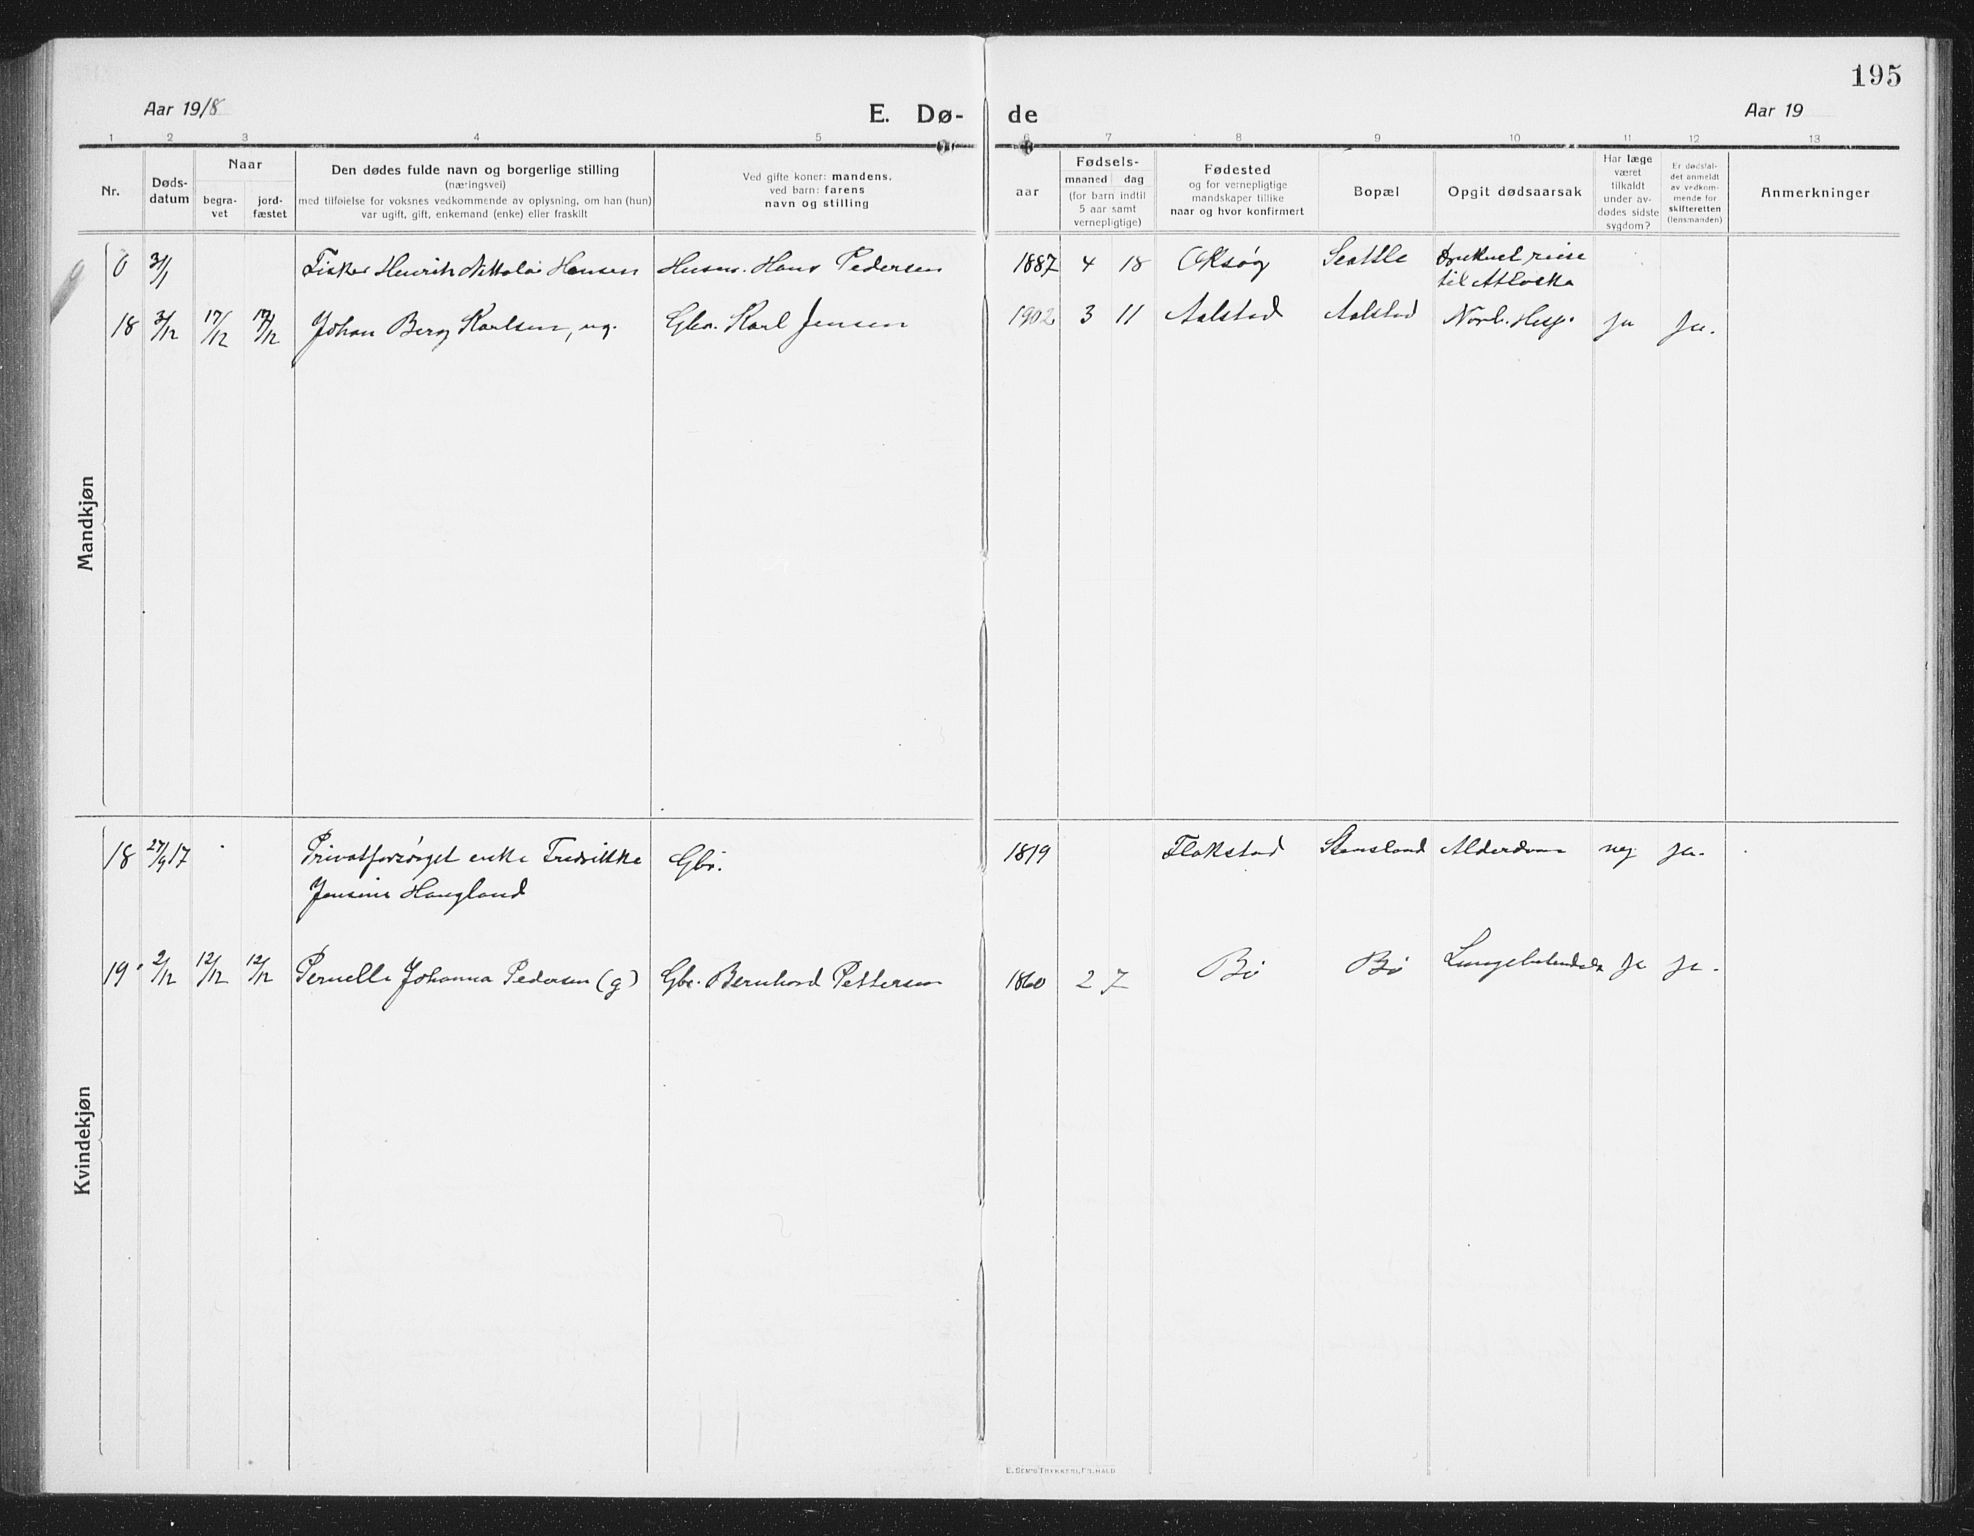 195
Aar 1918
E. Dø-
de
Aar 19
1 2 3 4 5 6 7 8 9 10 11 12 13
Nr.
Døds-
datum
Naar
begra-
vet
jord-
fæstet
Den dødes fulde navn og borgerlige stilling
(næringsvei)
med tilføielse for voksnes vedkommende av oplysning, om han (hun)
var ugift, gift, enkemand (enke) eller fraskilt
Ved gifte koner: mandens,
ved barn: farens
navn og stilling
aar
Fødsels-
maaned dag
(for barn indtil
5 aar samt
vernepligtige)
Fødested
og for vernepligtige
mandskaper tillike
naar og hvor konfirmert
Bopæl
Opgit dødsaarsak
Har læge
været
tilkaldt
under av-
dødes sidste
sygdom?
Er dødsfal-
det anmeldt
av vedkom-
mende for
skifteretten
(lensmanden)
Anmerkninger
Mandkjøn
0 3/1 Fisker Henrik Nikolai Hansen Husm. Hans Pedersen 1887 4 18 Oksøy Seattle Druknet reise
til Atlaska
18 3/12 17/12 17/12 Johan Berg Karlsen, ug. Gbr. Karl Jensen 1902 3 11 Aalstad Aalstad Nord. Hosp. ja ja.
Kvindekjøn
18 27/9 17 Privatforsørget enke Fredrikke Gbr. 1819 Flakstad Stensland Alderdom nej ja.
Jensine Haugland
19 2/12 12/12 12/12 Pernelle Johanna Pedersen (g) Gbr. Bernhard Pettersen 1860 2 7 Bø Bø ja ja.
E. SEM'S TRYKKERI, FR.HALD